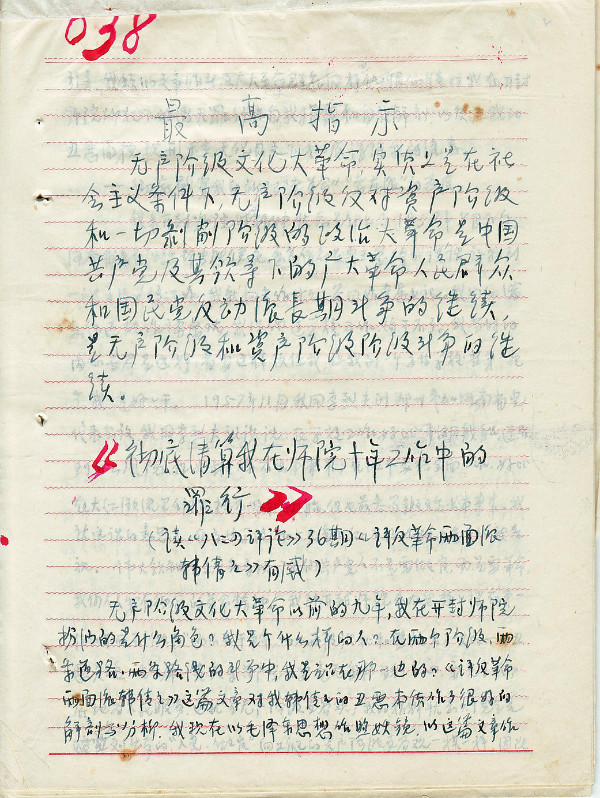 038
最高指示
无产阶级文化大革命,实质上是在社
会主义条件下,无产阶级反对资产阶级
和一切剥削阶级的政治大革命,是中国
共产党及其领导下的广大革命人民群众
和国民党反动派长期斗争的继续,
是无产阶级和资产阶级阶级斗争的继
续。
《彻底清算我在师院十年工作中的
罪行》
(读《八二四评论》36期《评反革命两面派
韩倩之》有感)
无产阶级文化大革命以前的九年,我在开封师院
扮演的是什么角色?我是个什么样的人?在两个阶级、两
条道路、两条路线的斗争中,我是站在那一边的?《评反革命
两面派韩倩之》这篇文章对我韩倩之的丑恶本质作了很好的
解剖与分析。我现在以毛泽东思想作照妖镜,以这篇文章作